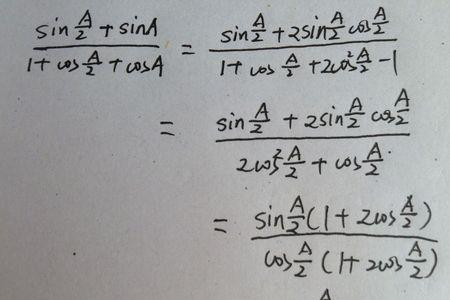 \frac{\sin\frac{A}{2}+\sin A}{1+\cos\frac{A}{2}+\cos A} = \frac{\sin\frac{A}{2}+2\sin\frac{A}{2}\cos\frac{A}{2}}{1+\cos\frac{A}{2}+2\cos^2\frac{A}{2}-1}
= \frac{\sin\frac{A}{2}+2\sin\frac{A}{2}\cos\frac{A}{2}}{2\cos^2\frac{A}{2}+\cos\frac{A}{2}}
= \frac{\sin\frac{A}{2}(1+2\cos\frac{A}{2})}{\cos\frac{A}{2}(1+2\cos\frac{A}{2})}